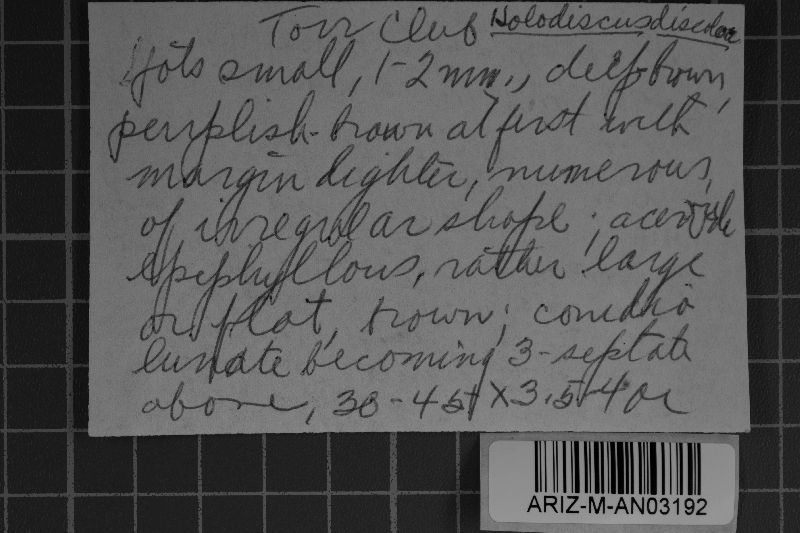 Torr Club Holodiscus discolor
spots small, 1-2 mm., deep brown,
purplish-brown at first with
margin lighter, numerous,
of irregular shape;
epiphyllous, rather large
or flat, brown; conidia
lunate becoming 3-septate
above, 38-45 X 3.5-4
ARIZ-M-AN03192